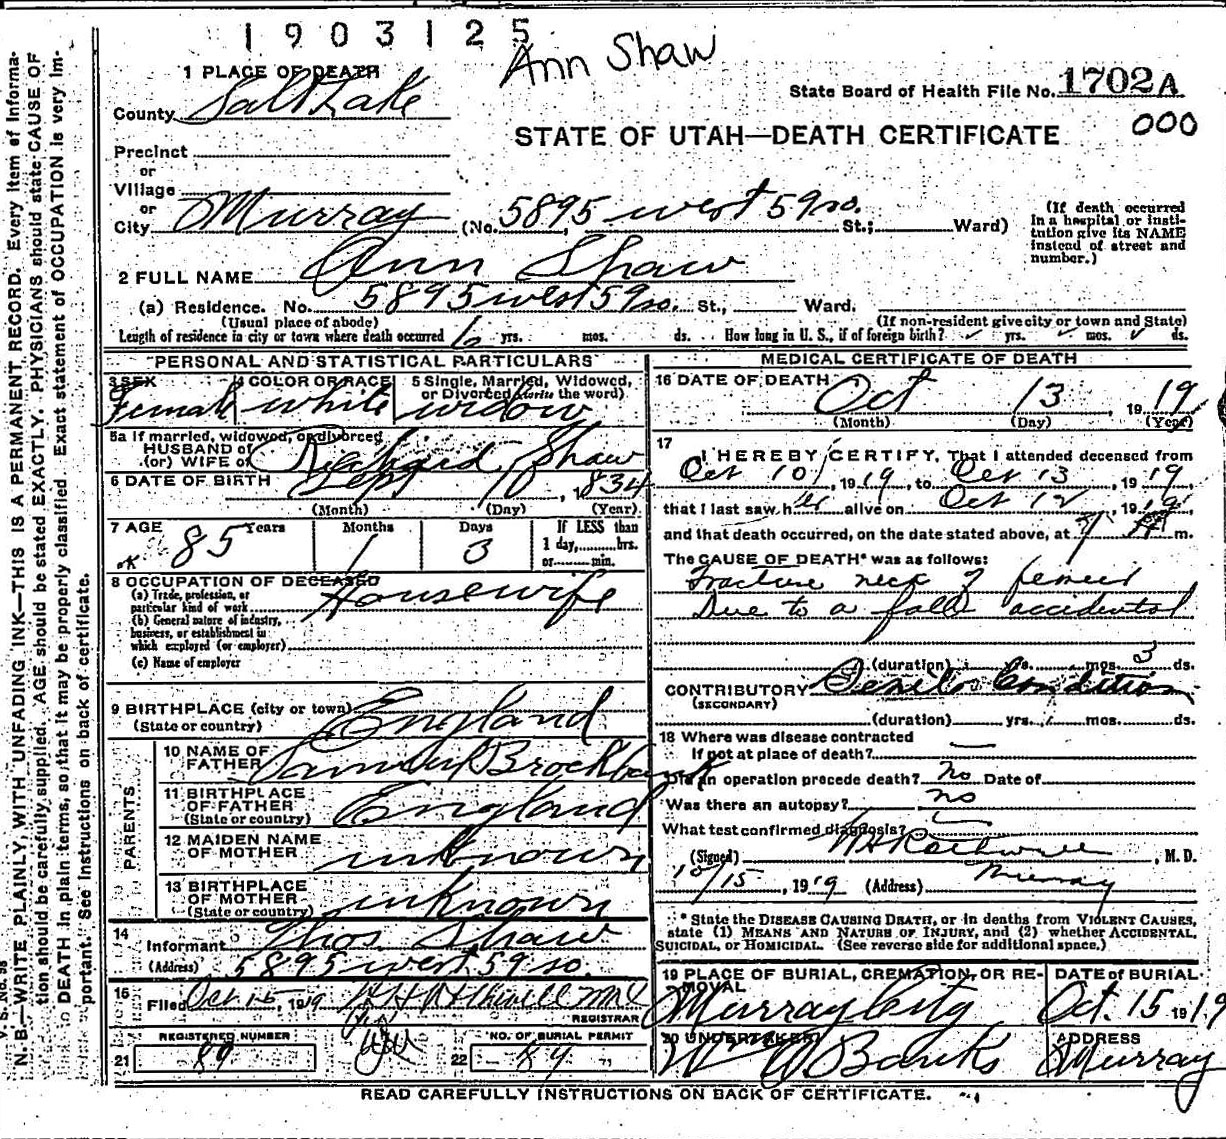 1903125
Ann Shaw
1 PLACE OF DEATH
County Salt Lake
State Board of Health File No. 1702A
000
STATE OF UTAH—DEATH CERTIFICATE
Precinct
or
Village
or
City Murray (No. 5895 west 59 so. St.; Ward)
(If death occurred in a hospital or institution give its NAME instead of street and number.)
2 FULL NAME Ann Shaw
(a) Residence. No. 5895 west 59 so. St., Ward.
(Usual place of abode) (If non-resident give city or town and State)
Length of residence in city or town where death occurred 6 yrs. mos. ds. How long in U. S., if of foreign birth? yrs. mos. ds.
PERSONAL AND STATISTICAL PARTICULARS
3 SEX 4 COLOR OR RACE 5 Single, Married, Widowed, or Divorced (write the word)
Female white widow
5a If married, widowed, or divorced
HUSBAND of
(or) WIFE of Richard Shaw
6 DATE OF BIRTH Sept 10, 1834
(Month) (Day) (Year)
7 AGE 85 Years 1 Months 3 Days If LESS than 1 day, hrs. or min.
8 OCCUPATION OF DECEASED
(a) Trade, profession, or particular kind of work Housewife
(b) General nature of industry, business, or establishment in which employed (or employer)
(c) Name of employer
9 BIRTHPLACE (city or town) England
(State or country)
PARENTS
10 NAME OF FATHER Samuel Brockbank
11 BIRTHPLACE OF FATHER England
(State or country)
12 MAIDEN NAME OF MOTHER unknown
13 BIRTHPLACE OF MOTHER unknown
(State or country)
14
Informant Thos. Shaw
(Address) 5895 west 59 so.
15 Filed Oct 15, 1919
REGISTRAR
REGISTERED NUMBER
21 89
NO. OF BURIAL PERMIT
22 89
MEDICAL CERTIFICATE OF DEATH
16 DATE OF DEATH Oct 13, 1919
(Month) (Day) (Year)
17 I HEREBY CERTIFY, That I attended deceased from
Oct 10, 1919, to Oct 13, 1919
that I last saw her alive on Oct 12, 1919
and that death occurred, on the date stated above, at m.
The CAUSE OF DEATH* was as follows:
Fracture neck of femur
Due to a fall accidental
(duration) yrs. mos. 3 ds.
CONTRIBUTORY Senile Condition
(SECONDARY)
(duration) yrs. mos. ds.
18 Where was disease contracted
If not at place of death?
Did an operation precede death? no Date of
Was there an autopsy? no
What test confirmed diagnosis?
(Signed) , M. D.
10/15, 1919 (Address) Murray
* State the DISEASE CAUSING DEATH, or in deaths from VIOLENT CAUSES, state (1) MEANS AND NATURE OF INJURY, and (2) whether ACCIDENTAL, SUICIDAL, OR HOMICIDAL. (See reverse side for additional space.)
19 PLACE OF BURIAL, CREMATION, OR REMOVAL DATE of BURIAL
Murray City Oct. 15 1919
20 UNDERTAKER ADDRESS
Banks Murray
READ CAREFULLY INSTRUCTIONS ON BACK OF CERTIFICATE.
V. S. No. 98
N. B.—WRITE PLAINLY, WITH UNFADING INK—THIS IS A PERMANENT RECORD. Every item of information should be carefully supplied. AGE should be stated EXACTLY. PHYSICIANS should state CAUSE OF DEATH in plain terms, so that it may be properly classified. Exact statement of OCCUPATION is very important. See instructions on back of certificate.